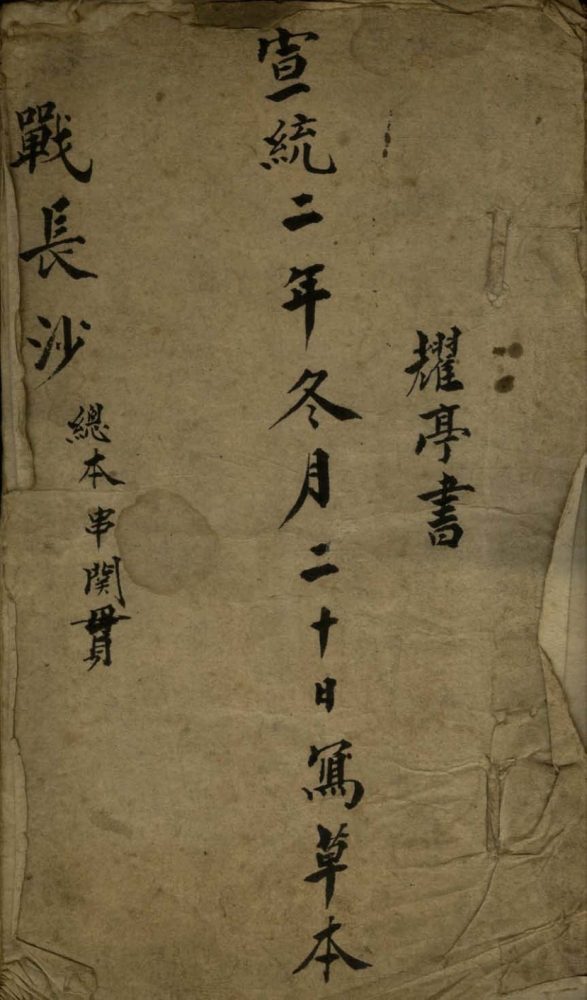 耀亭書
宣統二年冬月二十日寫草本
戰長沙
總本串関貫